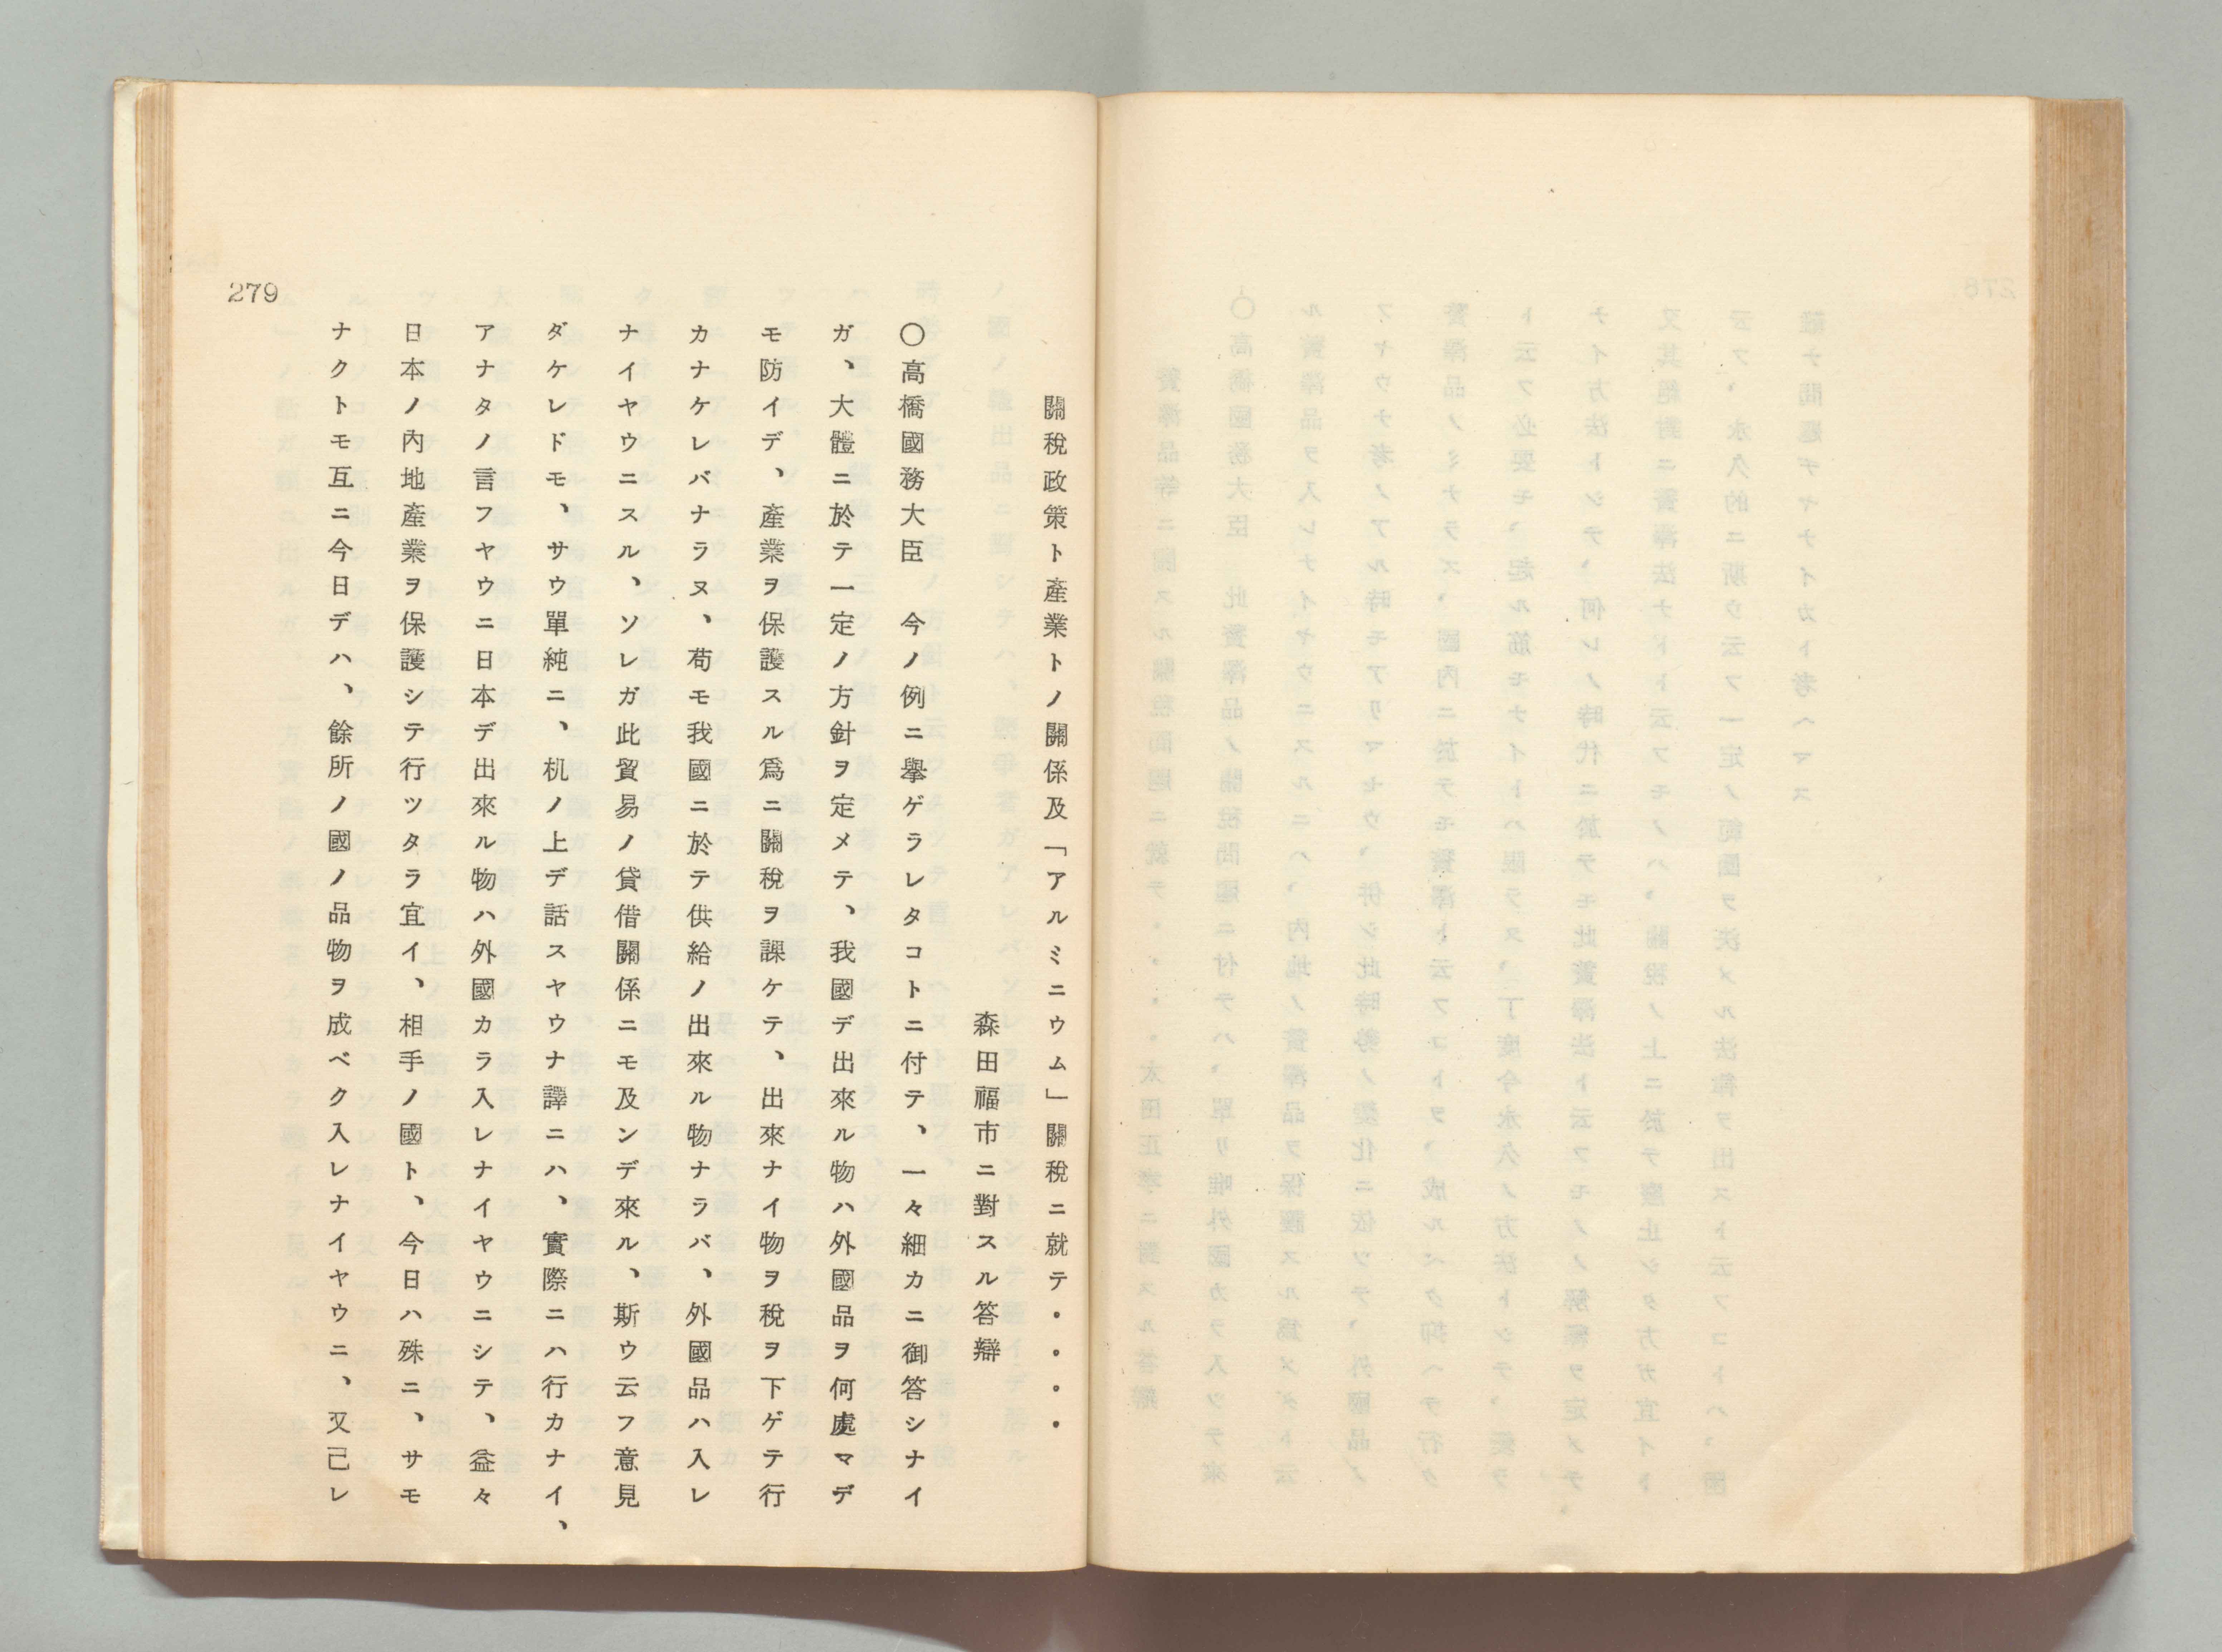 關稅政策ト產業トノ關係及「アルミニウム」關稅ニ就テ・・・・
森田福市ニ對スル答辯
〇高橋國務大臣　今ノ例ニ擧ゲラレタコトニ付テ、一々細カニ御答シナイ
ガ、大體ニ於テ一定ノ方針ヲ定メテ、我國デ出來ル物ハ外國品ヲ何處マデ
モ防イデ、產業ヲ保護スル爲ニ關稅ヲ課ケテ、出來ナイ物ヲ稅ヲ下ゲテ行
カナケレバナラヌ、苟モ我國ニ於テ供給ノ出來ル物ナラバ、外國品ハ入レ
ナイヤウニスル、ソレガ此貿易ノ貸借關係ニモ及ンデ來ル、斯ウ云フ意見
ダケレドモ、サウ單純ニ、机ノ上デ話スヤウナ譯ニハ、實際ニハ行カナイ、
アナタノ言フヤウニ日本デ出來ル物ハ外國カラ入レナイヤウニシテ、益々
日本ノ內地產業ヲ保護シテ行ツタラ宜イ、相手ノ國ト、今日ハ殊ニ、サモ
ナクトモ互ニ今日デハ、餘所ノ國ノ品物ヲ成ベク入レナイヤウニ、又己レ
279